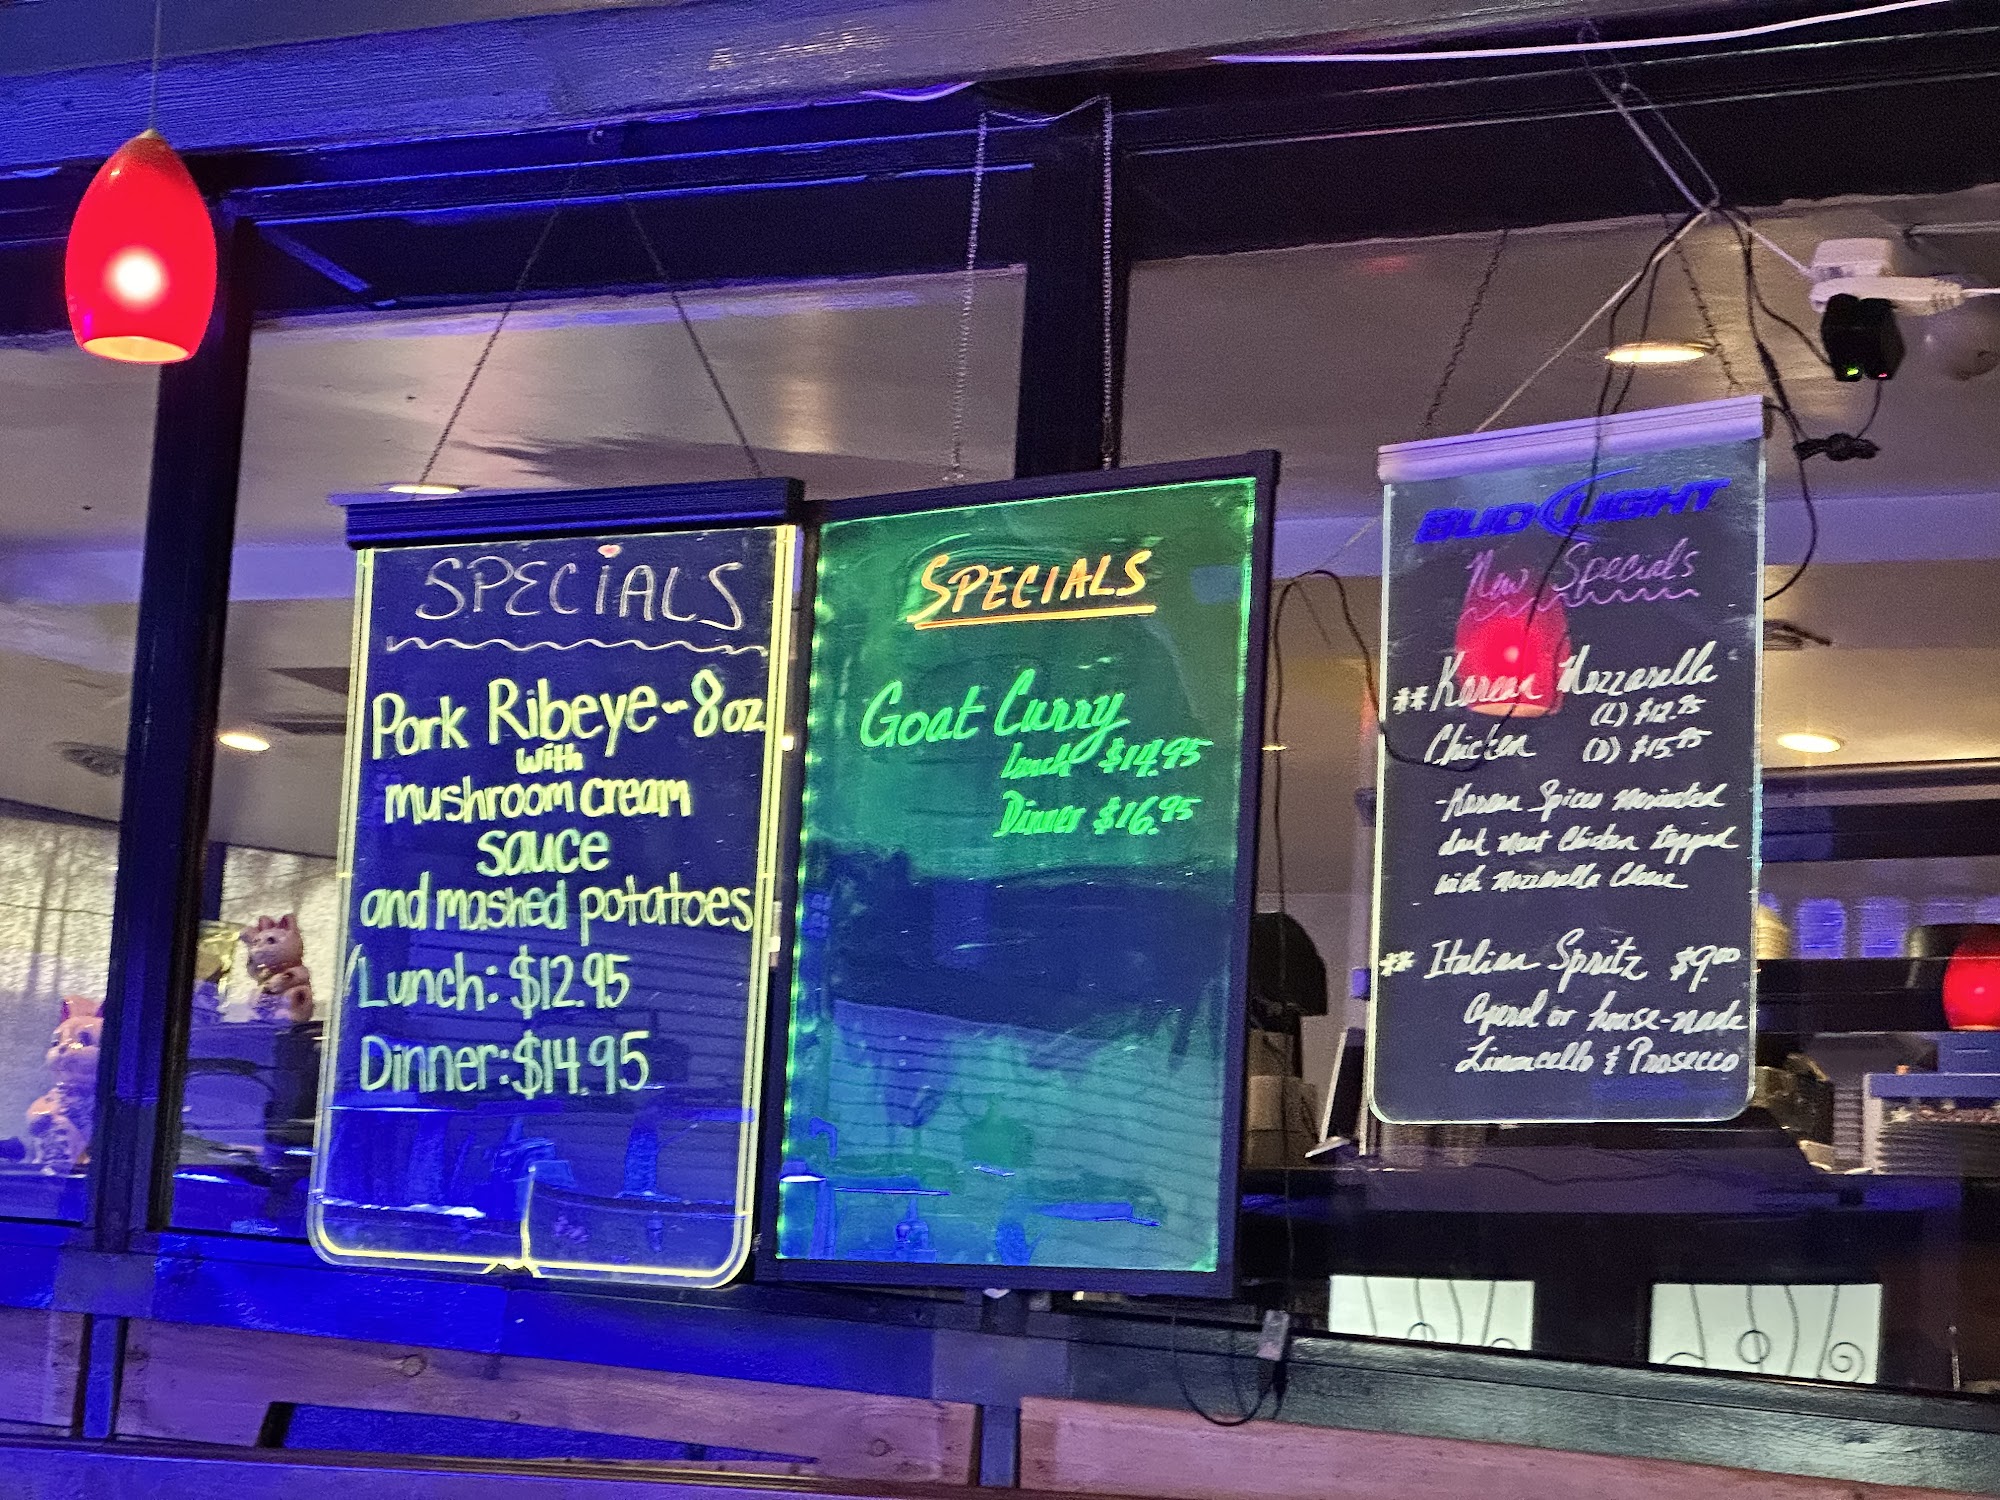 SPECiALS
Pork Ribeye ~ 8oz
with
mushroom cream
sauce
and mashed potatoes
Lunch: $12.95
Dinner: $14.95
SPECIALS
Goat Curry
Lunch $14.95
Dinner $16.95
BUD LIGHT
New Specials
** Korean Mozzarella
(L) $12.95
Chicken (D) $15.95
-Korean Spices Marinated
dark meat Chicken topped
with mozzarella Cheese
** Italian Spritz $9.00
Aperol or house-made
Limoncello & Prosecco